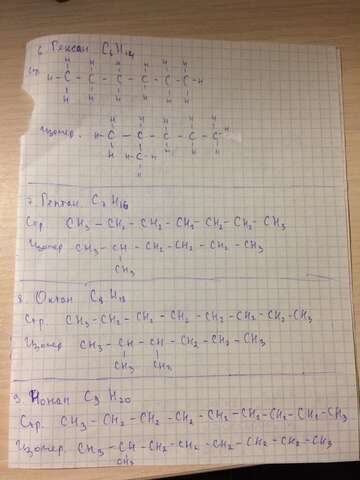 6. Гексан C6 H14
H H H H H H
Стр. H - C - C - C - C - C - C - H
H H H H H H
H H H H H
Изомер. H - C - C - C - C - C - H
H H H H
H - C - H
H
7. Гептан C7 H16
Стр. CH3 - CH2 - CH2 - CH2 - CH2 - CH2 - CH3
Изомер CH3 - CH - CH2 - CH2 - CH2 - CH3
CH3
8. Октан C8 H18
Стр. CH3 - CH2 - CH2 - CH2 - CH2 - CH2 - CH2 - CH3
Изомер CH3 - CH - CH - CH2 - CH2 - CH3
CH3 CH3
9. Нонан C9 H20
Стр. CH3 - CH2 - CH2 - CH2 - CH2 - CH2 - CH2 - CH2 - CH3
Изомер. CH3 - CH - CH2 - CH2 - CH2 - CH2 - CH2 - CH3
CH3